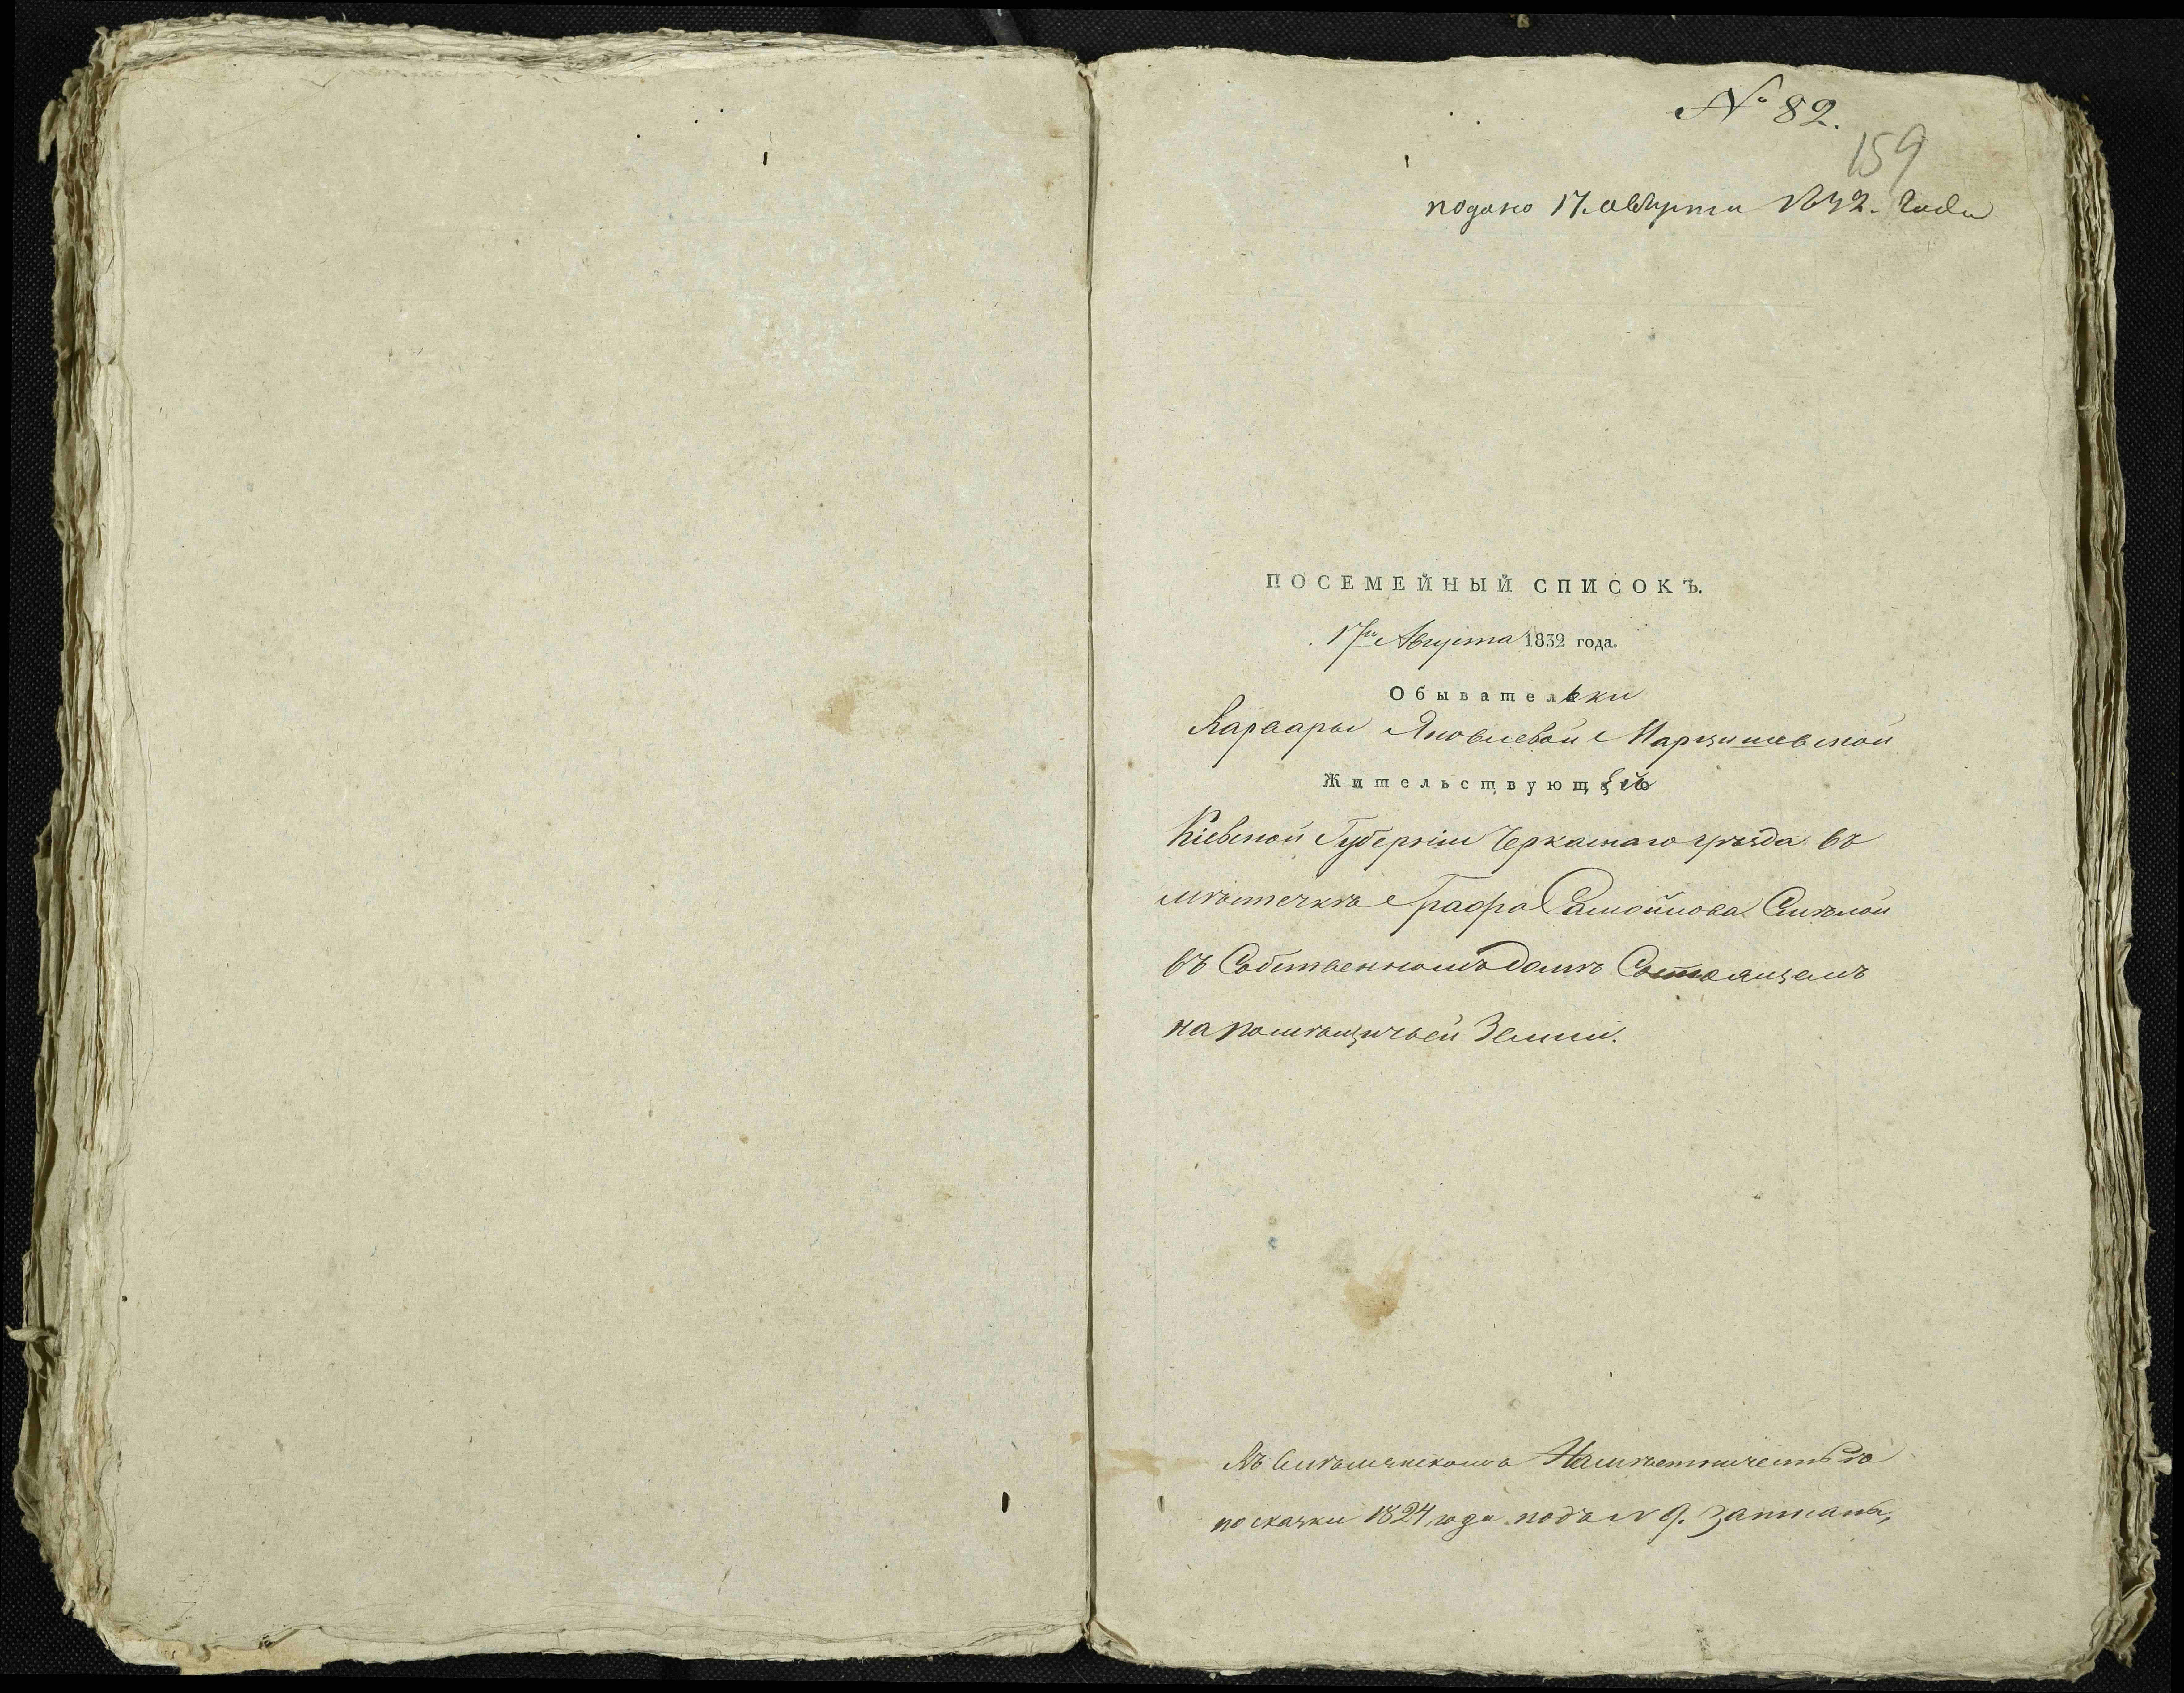 № 82.
159
подано 17. августа 1832. года
ПОСЕМЕЙНЫЙ СПИСОКЪ.
17го Августа 1832 года.
Обывательки
Варвары Яковлевой Марцишевской
Жительствующей
Кіевской Губерніи Черкаскаго уѣзда въ
мѣстечкѣ Графа Самойлова Смѣлой
въ Собственномъ домѣ Состоящемъ
на помѣщичьей Земли.
Въ Смѣлянскомъ Намѣстничествѣ
по скаски 1824 года подъ № 9. записана,